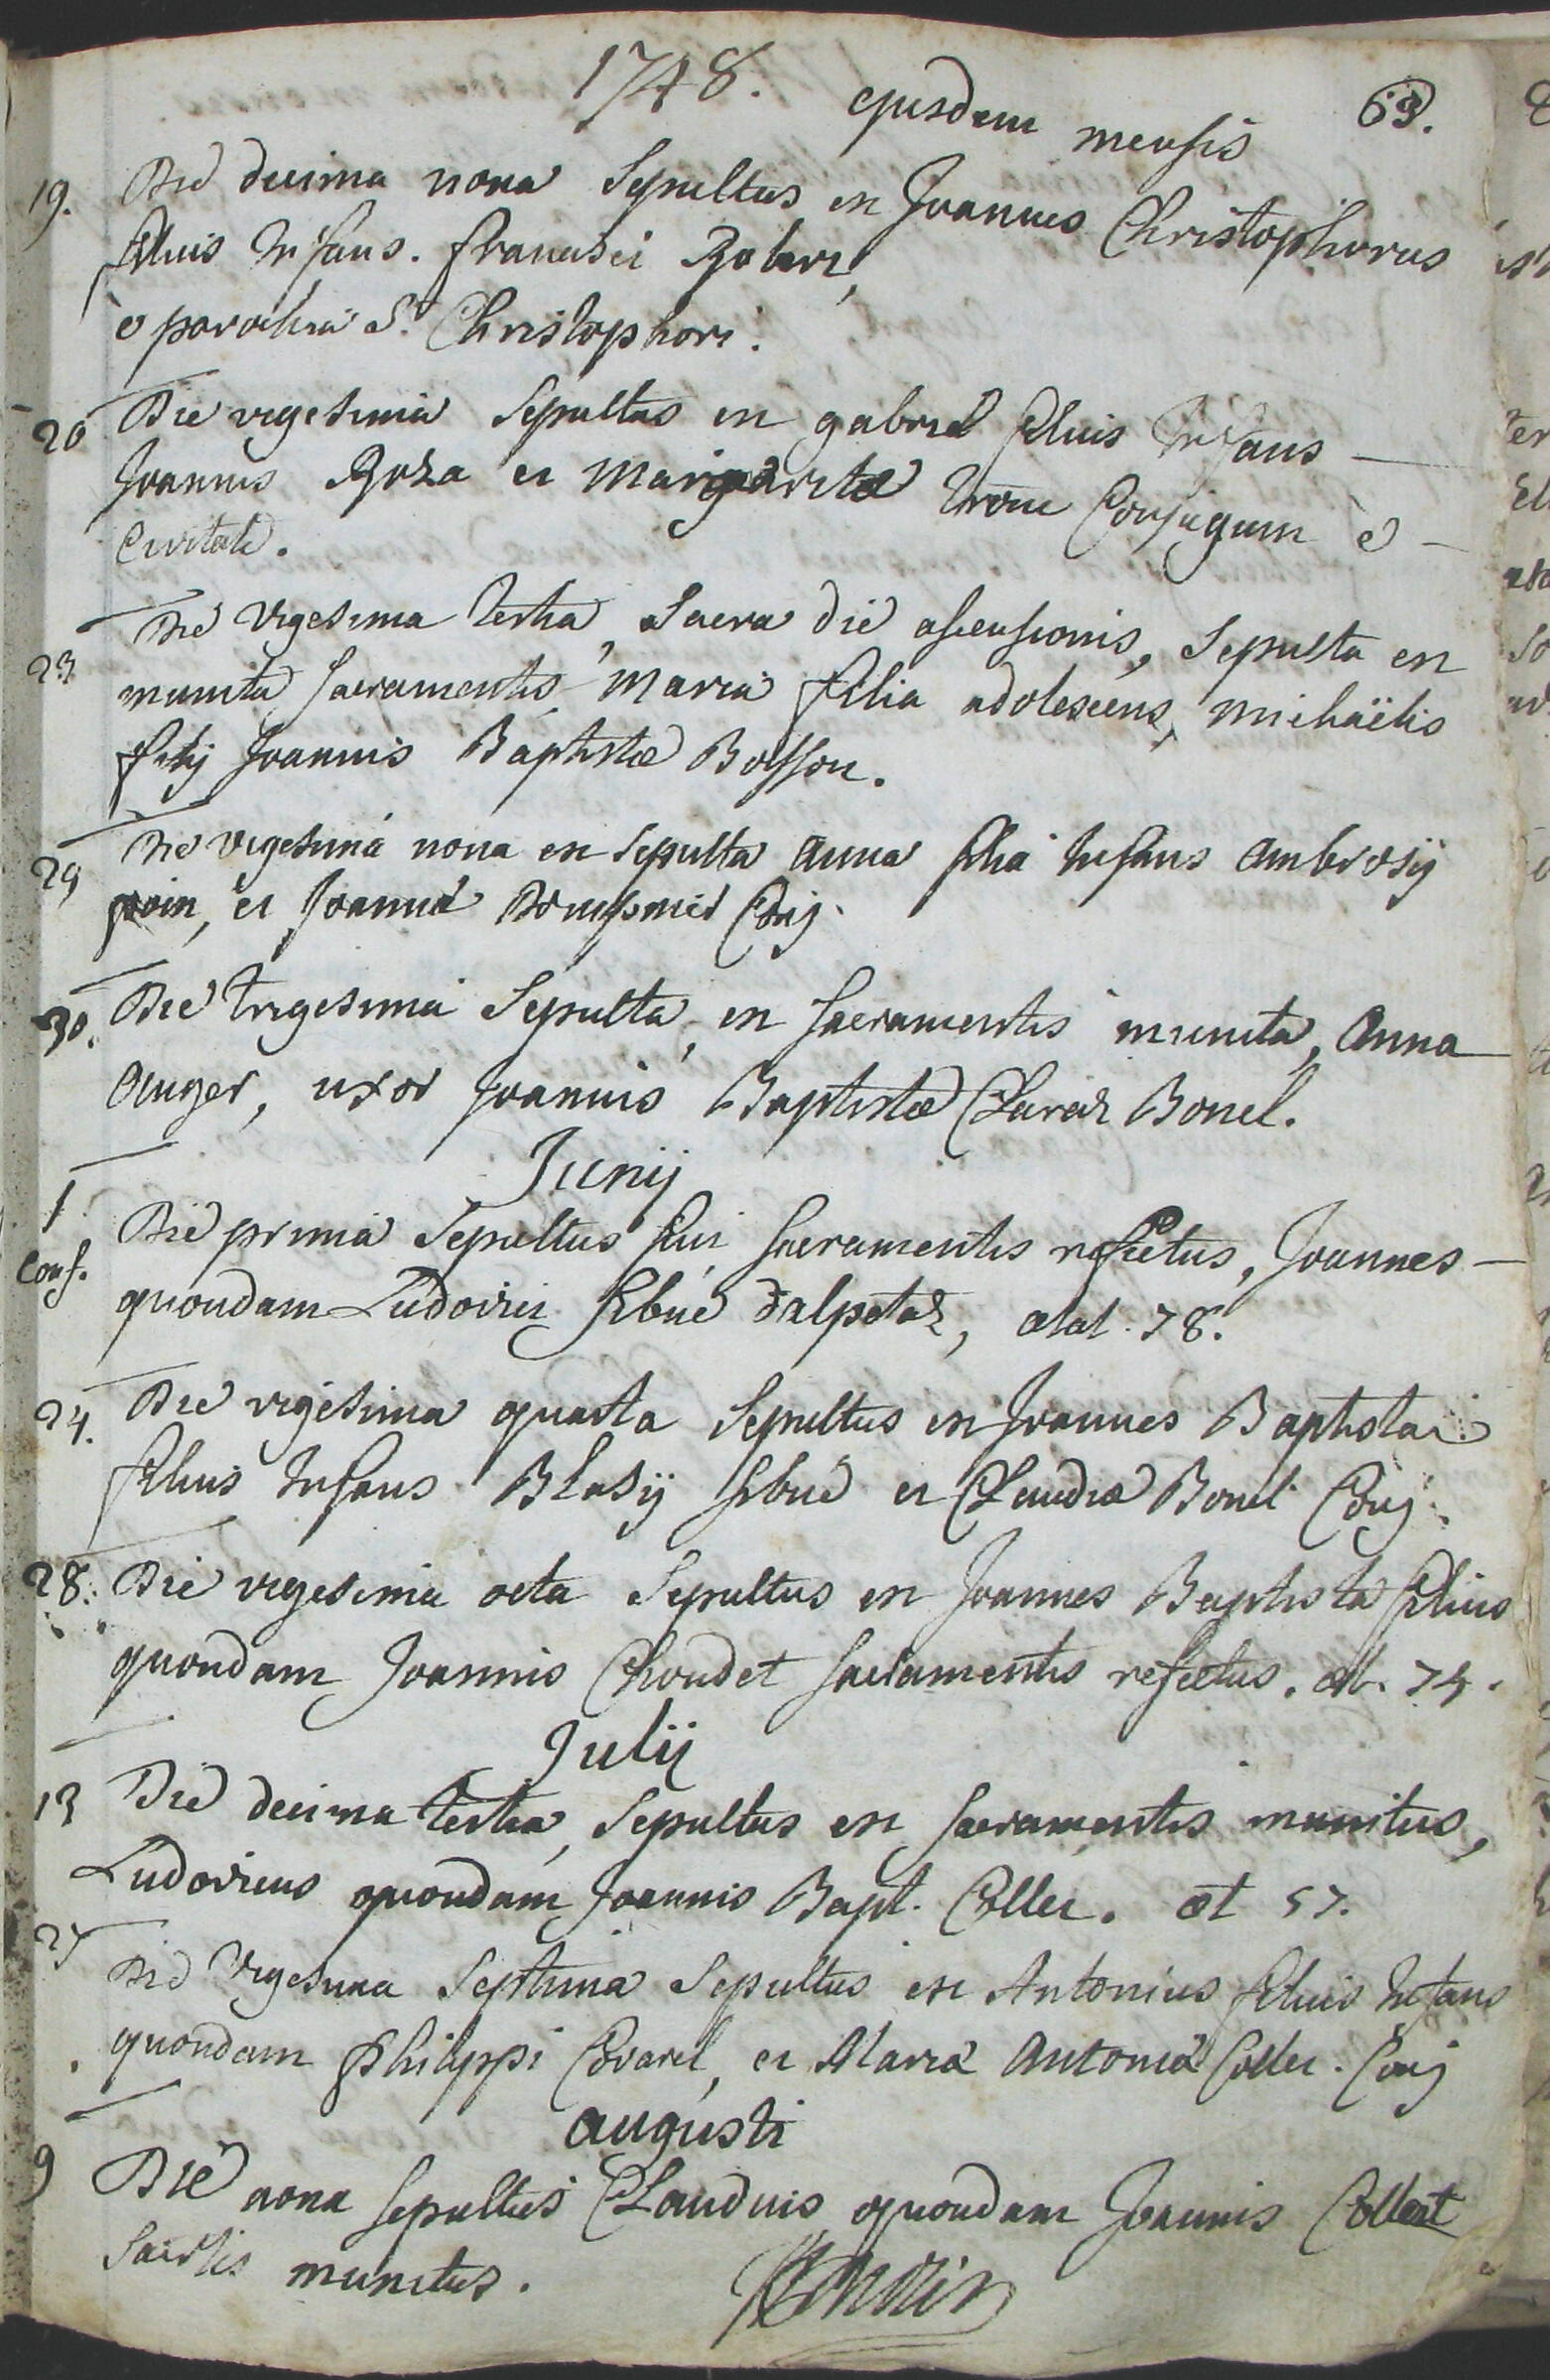 1748. ejusdem mensis 69.
19. Die decima nona Sepultus est Joannes Christophorus
filius Infans. francisci
è parochia St Christophori.
20 Die vigesima Sepultus est gabriel filius Infans
Joannis Roza et Margaritæ Conjugum è
Civitate.
23 Die vigesima tertia, Sacra die ascensionis, Sepulta est
munita sacramentis, Maria filia adolescens, Michaëlis
filij Joannis Baptistæ Bosson.
29 Die vigesima nona est Sepulta anna filia Infans ambrosij
et Joannæ Conj.
30. Die trigesima Sepulta est sacramentis munita, anna
anger, uxor Joannis Baptistæ Claraz Bonel.
Junij
1 Die prima Sepultus fui sacramentis refectus, Joannes
Conf. quondam Ludovici silvue dalpetaz, ætat. 78.
24. Die vigesima quarta Sepultus est Joannes Baptista
filius Infans Blasij silvue et Claudiæ Bonel Conj.
28. Die vigesima octa Sepultus est Joannes Baptista filius
quondam Joannis Choudet sacramentis refectus. æt. 75.
Julij
13 Die decima tertia, Sepultus est sacramentis munitus,
Ludovicus quondam Joannis Bapt. Collet. æt 57.
27 Die vigesima Septima Sepultus est Antonius filius Infans
quondam philippi Covarel, et Maria antonia Collet. Conj
augusti
9 Die nona sepultus Claudius quondam Joannis Collet
munitus.